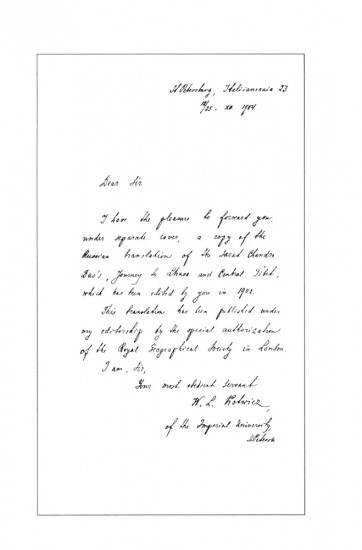 St Petersburg, Italiianskaia 23
12/25. XII. 1904
Dear Sir
I have the pleasure to forward you,
under separate cover, a copy of the
Russian translation of the Sarat Chandra
Das's, Journey to Lhasa and Central Tibet,
which has been edited by you in 1902.
This translation has been published under
my editorship by the special authorization
of the Royal Geographical Society in London.
I am, Sir,
Your most obedient servant
W. L. Kotwicz,
of the Imperial University,